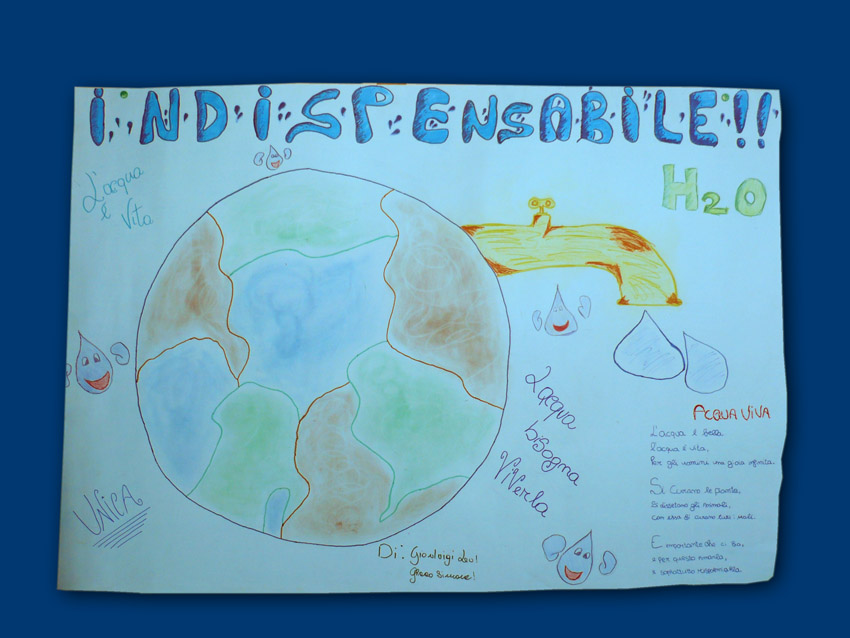 INDISPENSABILE!!
L'acqua
è
Vita
H2O
L'acqua
bisogna
Viverla
UNICA
ACQUA VIVA
L'acqua è bella
l'acqua è vita,
Per gli uomini una gioia infinita.
Si curano le piante,
Si dissetano gli animali,
con essa si curano tutti i mali.
E importante che ci sia,
e per questo amarla,
e soprattutto risparmiarla.
Di: Gianluigi Leo!
Simone!